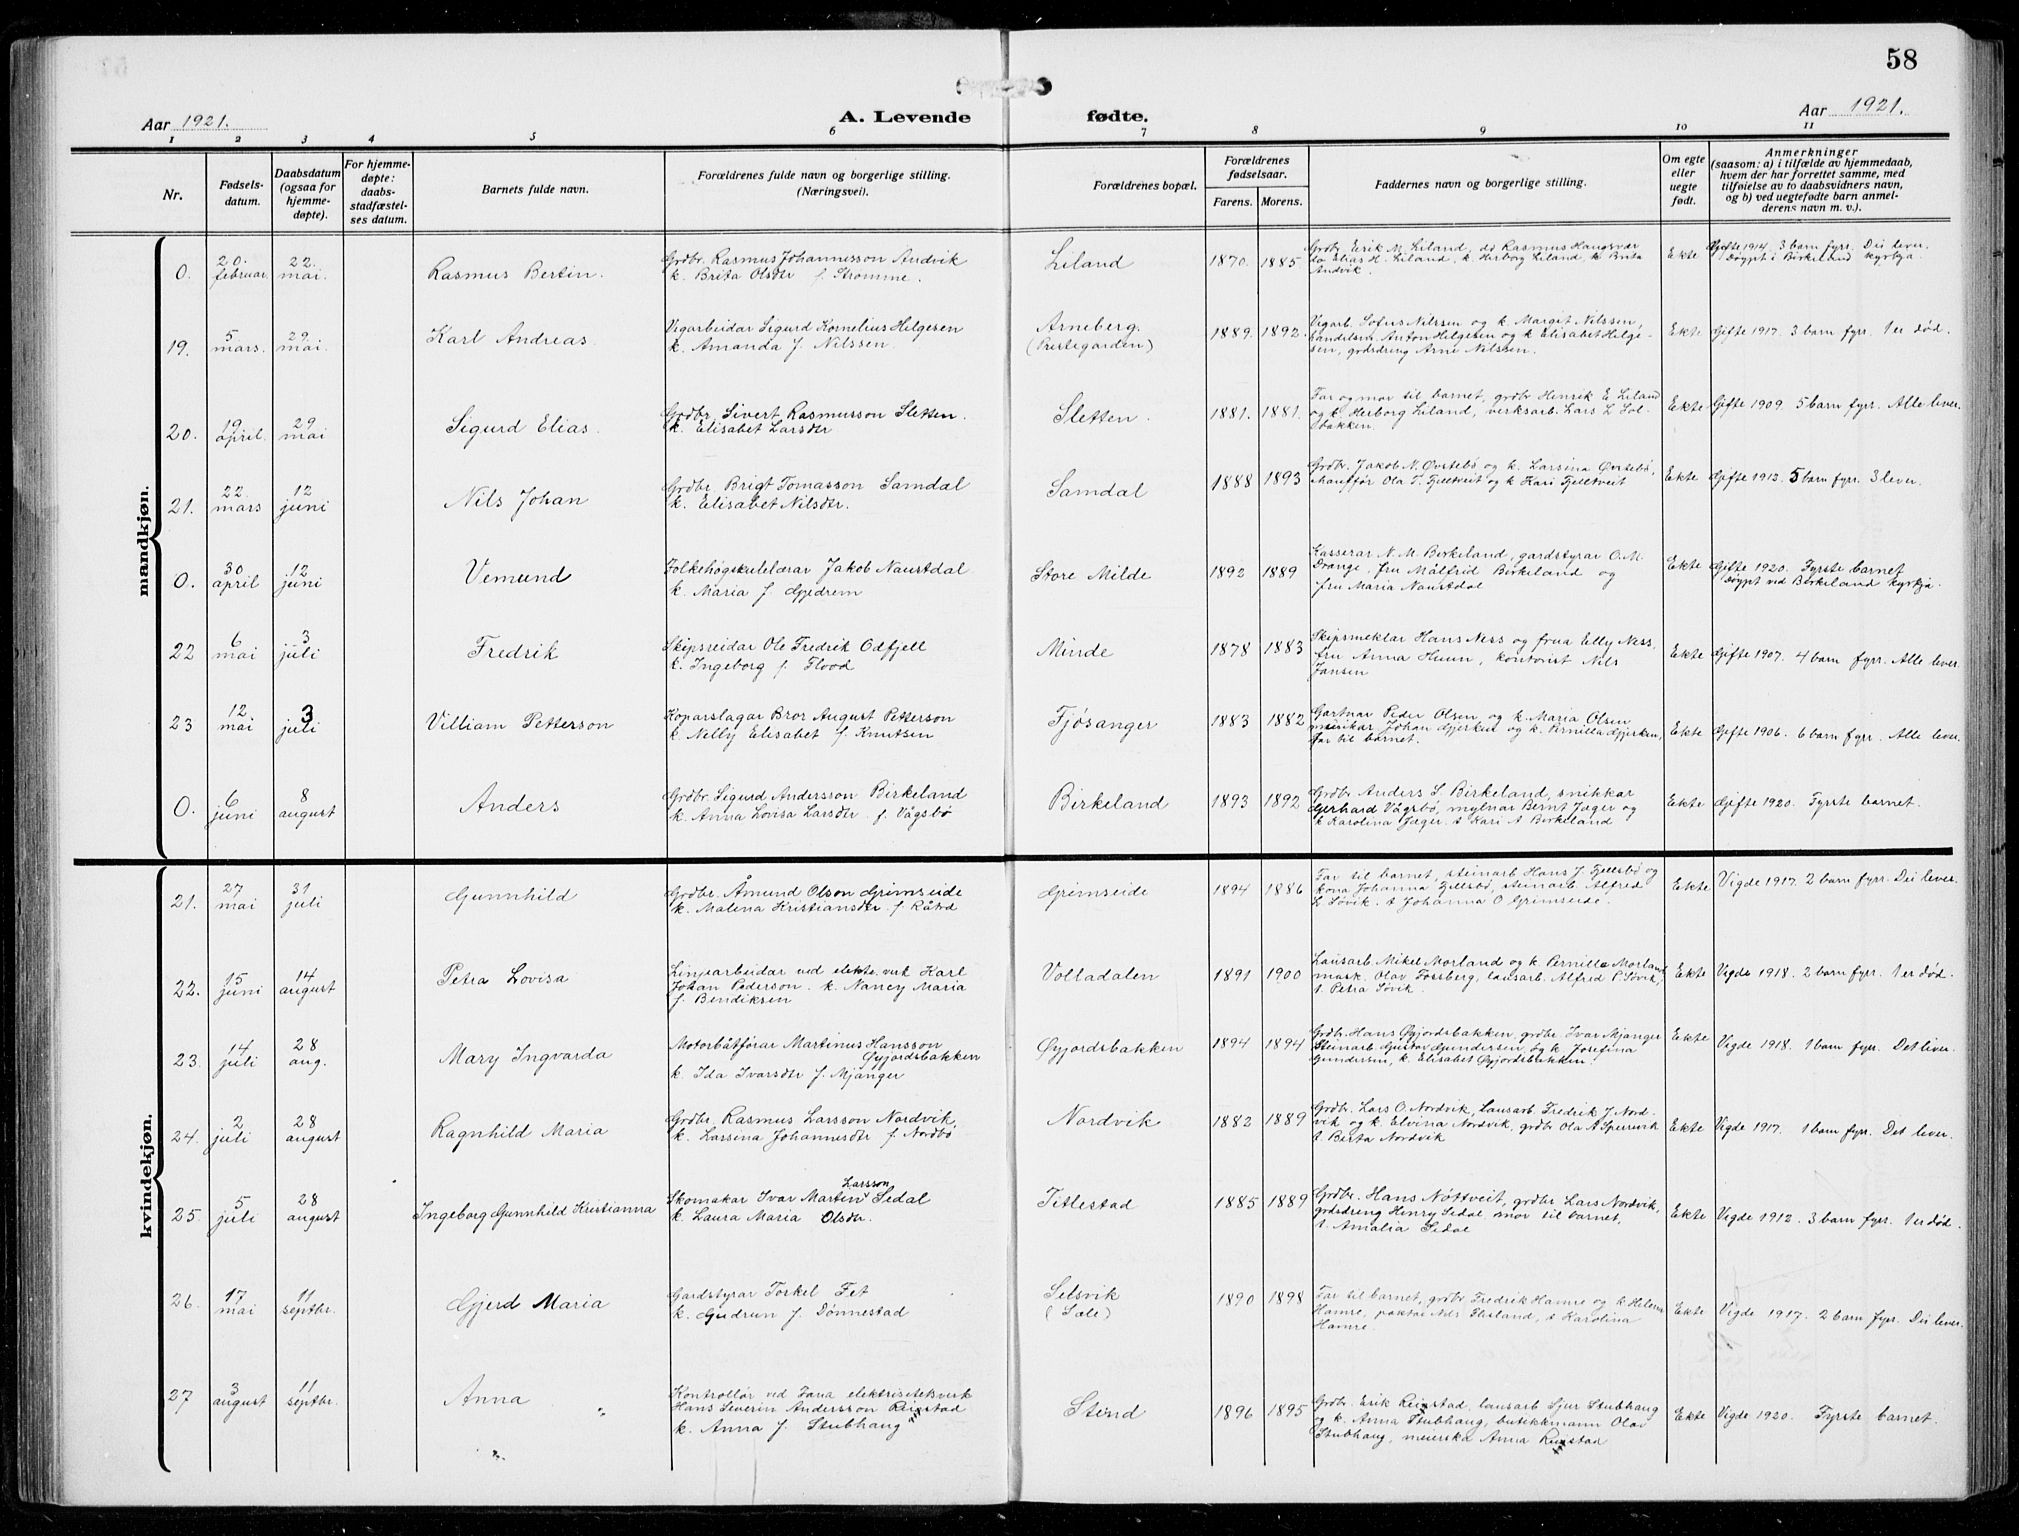 58
Aar 1921.
A. Levende fødte.
Aar 1921.
1 2 3 4 5 6 7 8 9 10 11
Nr.
Fødsels-
datum.
Daabsdatum
(ogsaa for
hjemme-
døpte).
For hjemme-
døpte:
daabs-
stadfæstel-
ses datum.
Barnets fulde navn.
Forældrenes fulde navn og borgerlige stilling.
(Næringsvei).
Forældrenes bopæl.
Forældrenes
fødselsaar.
Farens. Morens.
Faddernes navn og borgerlige stilling.
Om egte
eller
uegte
født.
Anmerkninger
(saasom: a) i tilfælde av hjemmedaab,
hvem der har forrettet samme, med
tilføielse av to daabsvidners navn,
og b) ved uegtefødte barn anmel-
derens navn m. v.).
mandkjøn.
0. 20. februar. 22. mai. Rasmus Bertin.
Grdbr. Rasmus Johannesson Andvik
k. Brita Olsdtr f. Strømme.
Liland 1870. 1885
Grdbr. Erik M. Liland, do Rasmus Haugsvær
do Elias H. Liland, k. Herborg Liland, k. Brita
Andvik.
Ekte
Gifte 1914. 3 barn fyrr. Dei lever.
Døypt i Birkeland kyrkja.
19. 5 mars. 29. mai. Karl Andreas.
Vegarbeidar Sigurd Kornelius Helgesen
k. Amanda f. Nilssen.
Arneberg.
(Prestegarden)
1889. 1892.
Vegarb. Sofus Nilssen og k. Margit Nilssen,
handelsm. Anton Helgesen og k Elisabet Helge-
sen, grdsdreng Arne Nilssen.
Ekte
Gifte 1917. 3 barn fyrr. 1 er død.
20. 19 april. 29 mai Sigurd Elias.
Grdbr. Sivert Rasmusson Sletten.
k. Elisabet Larsdtr
Sletten 1881. 1881.
Far og mor til barnet, grdbr Henrik E. Liland
og k. Herborg Liland, verksarb. Lars L Sol-
bakken.
Ekte
Gifte 1909. 5 barn fyrr. Alle lever.
21. 22. mars 12 juni Nils Johan
Grdbr Brigt Tomasson Samdal
k. Elisabet Nilsdtr.
Samdal 1888 1893
Grdbr. Jakob N. Øvstebø og k. Larsina Øvstebø,
chauffør Ola T. Fjelltveit og k Kari Fjelltveit
Ekte
Gifte 1912. 5 barn fyrr. 3 lever.
0. 30 april 12 juni Vemund
Folkehøgskulelærar Jakob Naustdal
k. Maria f. Gjedrem
Store Milde 1892 1889
Kasserar N. M. Birkeland, gardstyrar O. M.
Drange, fru Målfrid Birkeland og
fru Maria Naustdal
Ekte
Gifte 1920. Fyrste barnet
Døypt ved Birkeland kyrkja.
22 6 mai 3 juli Fredrik
Skipsreidar Ole Fredrik Odfjell
k. Ingeborg f. Flood
Minde 1878 1883
Skipsmeklar Hans Ness og frua Elly Ness,
fru Anna Huun, kontorist Nils
Jansen
Ekte
Gifte 1907. 4 barn fyrr. Alle lever.
23 12 mai 3 juli Villiam Petterson
Koparslagar Bror August Petterson
k. Nelly Elisabet f. Knutsen
Fjøsanger 1883 1882
Gartnar Peder Olsen og k. Maria Olsen
Johan Gjerken og k. Pernilla Gjerken,
far til barnet.
Ekte
Gifte 1906. 6 barn fyrr. Alle lever.
0. 6 juni 8 august Anders
Grdbr. Sigurd Andersson Birkeland
k. Anna Lovisa Larsdtr. f. Vågsbø
Birkeland 1893 1892
Grdbr. Anders S. Birkeland, snikkar
Gerhard Vågsbø, mylnar Bernt Jæger og
k Karolina Jæger. t Kari A Birkeland
Ekte
Gifte 1920. Fyrste barnet.
kvindekjøn.
21. 27 mai 31 juli Gunnhild
Grdbr. Åmund Olson Grimseide
k. Malena Kristiansdtr f. Råtrd
Grimseide 1894 1886
Far til barnet, steinarb Hans J. Fjellsbø og
kona Johanna Fjellsbø, steinarb. Alfred
L Søvik. t Johanna O Grimseide.
Ekte
Vigde 1917. 2 barn fyrr. Dei lever.
22. 15 juni 14 august Petra Lovisa
Linjearbeidar ved elektr. verk Karl
Johan Pederson. k. Nancy Maria
f. Bendiksen
Volladalen 1891 1900
Lausarb. Mikel Morland og k Pernilla Morland,
mask. Olav Forsberg, lausarb. Alfred P. Søvik,
t. Petra Søvik.
Ekte
Vigde 1918. 2 barn fyrr. 1 er død.
23. 14 juli 28 aug. Mary Ingvarda
Motorbåtførar Martinus Hansson
Gyjordsbakken
k. Ida Ivarsdtr f. Mjanger
Gyjordsbakken 1894 1894
Grdbr. Hans Gyjordsbakken, grdbr Ivar Mjanger
Steinarb Gustav Gundersen og k Josefina
Gundersen, k. Elisabet Gyjordsbakken.
Ekte
Vigde 1918. 1 barn fyrr. Det lever.
24. 2 juli 28 august Ragnhild Maria
Grdbr Rasmus Larsson Nordvik,
k. Larsina Johannesdtr f. Nordbø
Nordvik 1882 1889
Grdbr. Lars O. Nordvik, lausarb. Fredrik J Nord-
vik og k. Elvina Nordvik, grdbr Ola A Sperrevik
t Berta Nordvik
Ekte
Vigde 1917. 1 barn fyrr. Det lever.
25. 5 juli 28 august Ingeborg Gunnhild Kristianna
Larsson
Skomakar Ivar Martin Sedal
k. Laura Maria Olsdtr.
Titlestad 1885 1889
Grdbr. Hans Nøttveit, grdbr Lars Nordvik,
grdsdreng Henry Sedal. mor til barnet,
t. Amalia Sedal
Ekte
Vigde 1912. 3 barn fyrr. 1 er død.
26. 17 mai 11 septbr. Gjerd Maria
Gardstyrar Torkel Fet
k. Gudrun f. Dønnestad
Selsvik
(Sæle)
1890 1898
Far til barnet, grdbr Fredrik Hamre og k Helena
Hamre, Nils, t Karolina
Hamre.
Ekte
Vigde 1917. 2 barn fyrr. Dei lever.
27 3 august 11 septbr. Anna
Kontrollør ved Fana elektrisitetsverk
Hans Severin Andersson Reistad
k. Anna f. Stubhaug
Stend 1896 1895
Grdbr. Erik Reistad, lausarb Sjur Stubhaug
og k. Anna Stubhaug, butikkmann Olav
Stubhaug, meierska Anna Reistad
Ekte
Vigde 1920. Fyrste barnet.